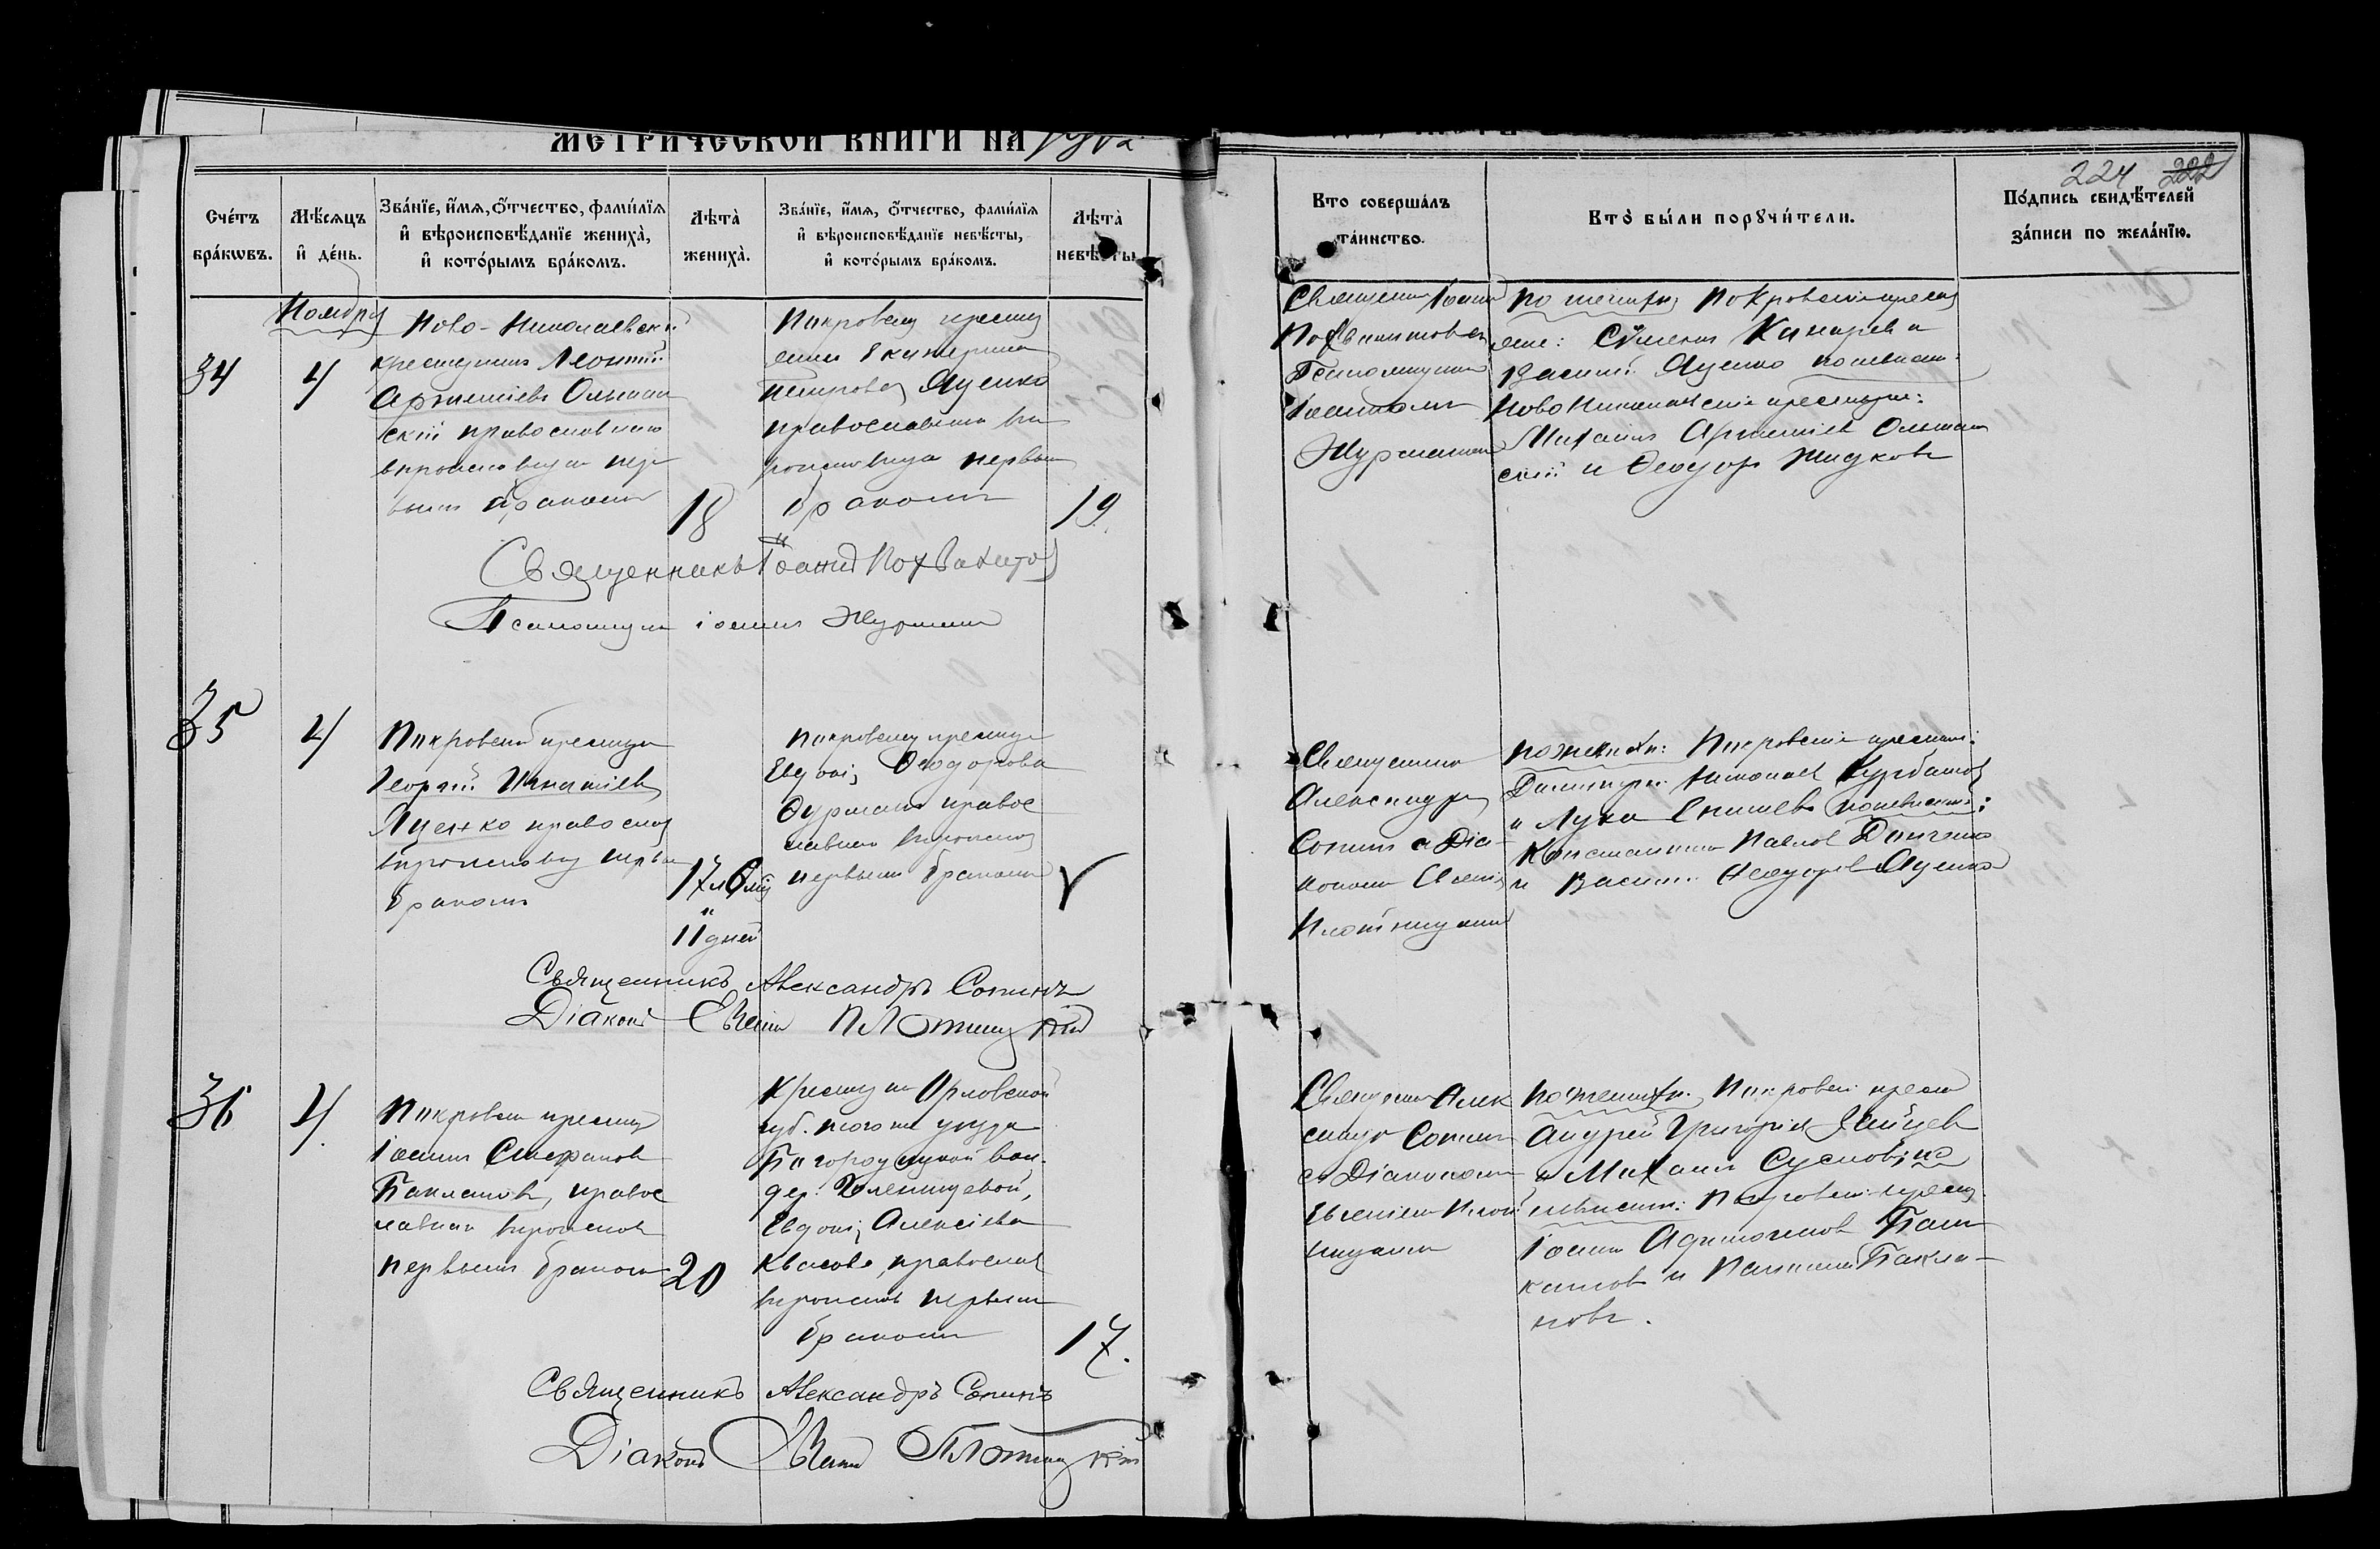 МЕТРИЧЕСКОЙ КНИГИ НА
224 222
Счетъ браковъ.
Мѣсяцъ и день.
Званіе, имя, отчество, фамилія и вѣроисповѣданіе жениха, и которымъ бракомъ.
Лѣта жениха.
Званіе, имя, отчество, фамилія и вѣроисповѣданіе невѣсты, и которымъ бракомъ.
Лѣта невѣсты
Кто совершалъ таинство.
Кто были поручители.
Подпись свидѣтелей записи по желанію.
Ноября
34
4
Ново-Николаевскій
крестьянинъ Леонтій
Артеміевъ Ольшан
скій православнаго
вѣроисповѣд пер
вымъ бракомъ
18
Покровская крестья
Екатерина
Петрова Яценко
православнаго вѣ
роисповѣд первымъ
бракомъ
19
Священникъ Іоаннъ
Похвалитовъ
Псаломщикомъ
Іоанномъ
Журманомъ
по женихѣ Покровскіе крестья
Сѵмеонъ Кинарев и
Василій Яценко по невѣст:
Ново Николаевскіе крестьян:
Михаилъ Артеміев Ольшан
скій и Ѳеодоръ Жидковъ
Священникъ Іоаннъ Похвалитов
Псаломщикъ Іоаннъ Журман
35
4
Покровскій крестья
Георгій Игнатіевъ
Яценко православ
вѣроисповѣд первым
бракомъ
17 л 6 мѣ
11 дней
Покровская крестья
Евдокія Ѳеодорова
Фурман правос
лавнаго вѣроиспов
первымъ бракомъ
Священник
Александр
Сопинъ с Діа-
кономъ Евгеніем
Плотницкимъ
по женихѣ: Покровскіе крестьян:
Димитрій Николаев Курбатов
и Лука по невѣст:
Константин Павлов Данченко
и Василій Ѳеодоров Яценко
Священникъ Александръ Сопинъ
Діаконъ Евгеній Плотницкій
36
4
Покровскій крестья
Іоаннъ Стефанов
Баклановъ, правос
лавнаго вѣроиспов
первымъ бракомъ
20
Крестьянка Орловской
губ. того же уѣзда
Богородицкой вол.
дер.
Евдокія Алексіева
Квасова, православ
вѣроиспов первым
бракомъ
17.
Священ Алек
сандр Сопин
съ Діакономъ
Евгеніем Плот
ницкимъ
по женихѣ. Покровскі крестья
Андрей Григоріев Зайцев
и Михаилъ Суслов, по
невѣст: Покровскі крестья
Іоанн Баклановъ и Бакла-
новъ.
Священникъ Александръ Сопинъ
Діаконъ Евгеній Плотницкій